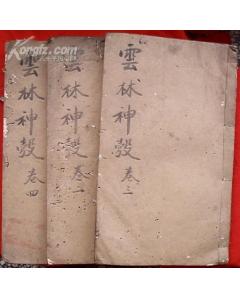 Kongfz.com
雲林神彀 卷三
雲林神彀 卷一
雲林神彀 卷四